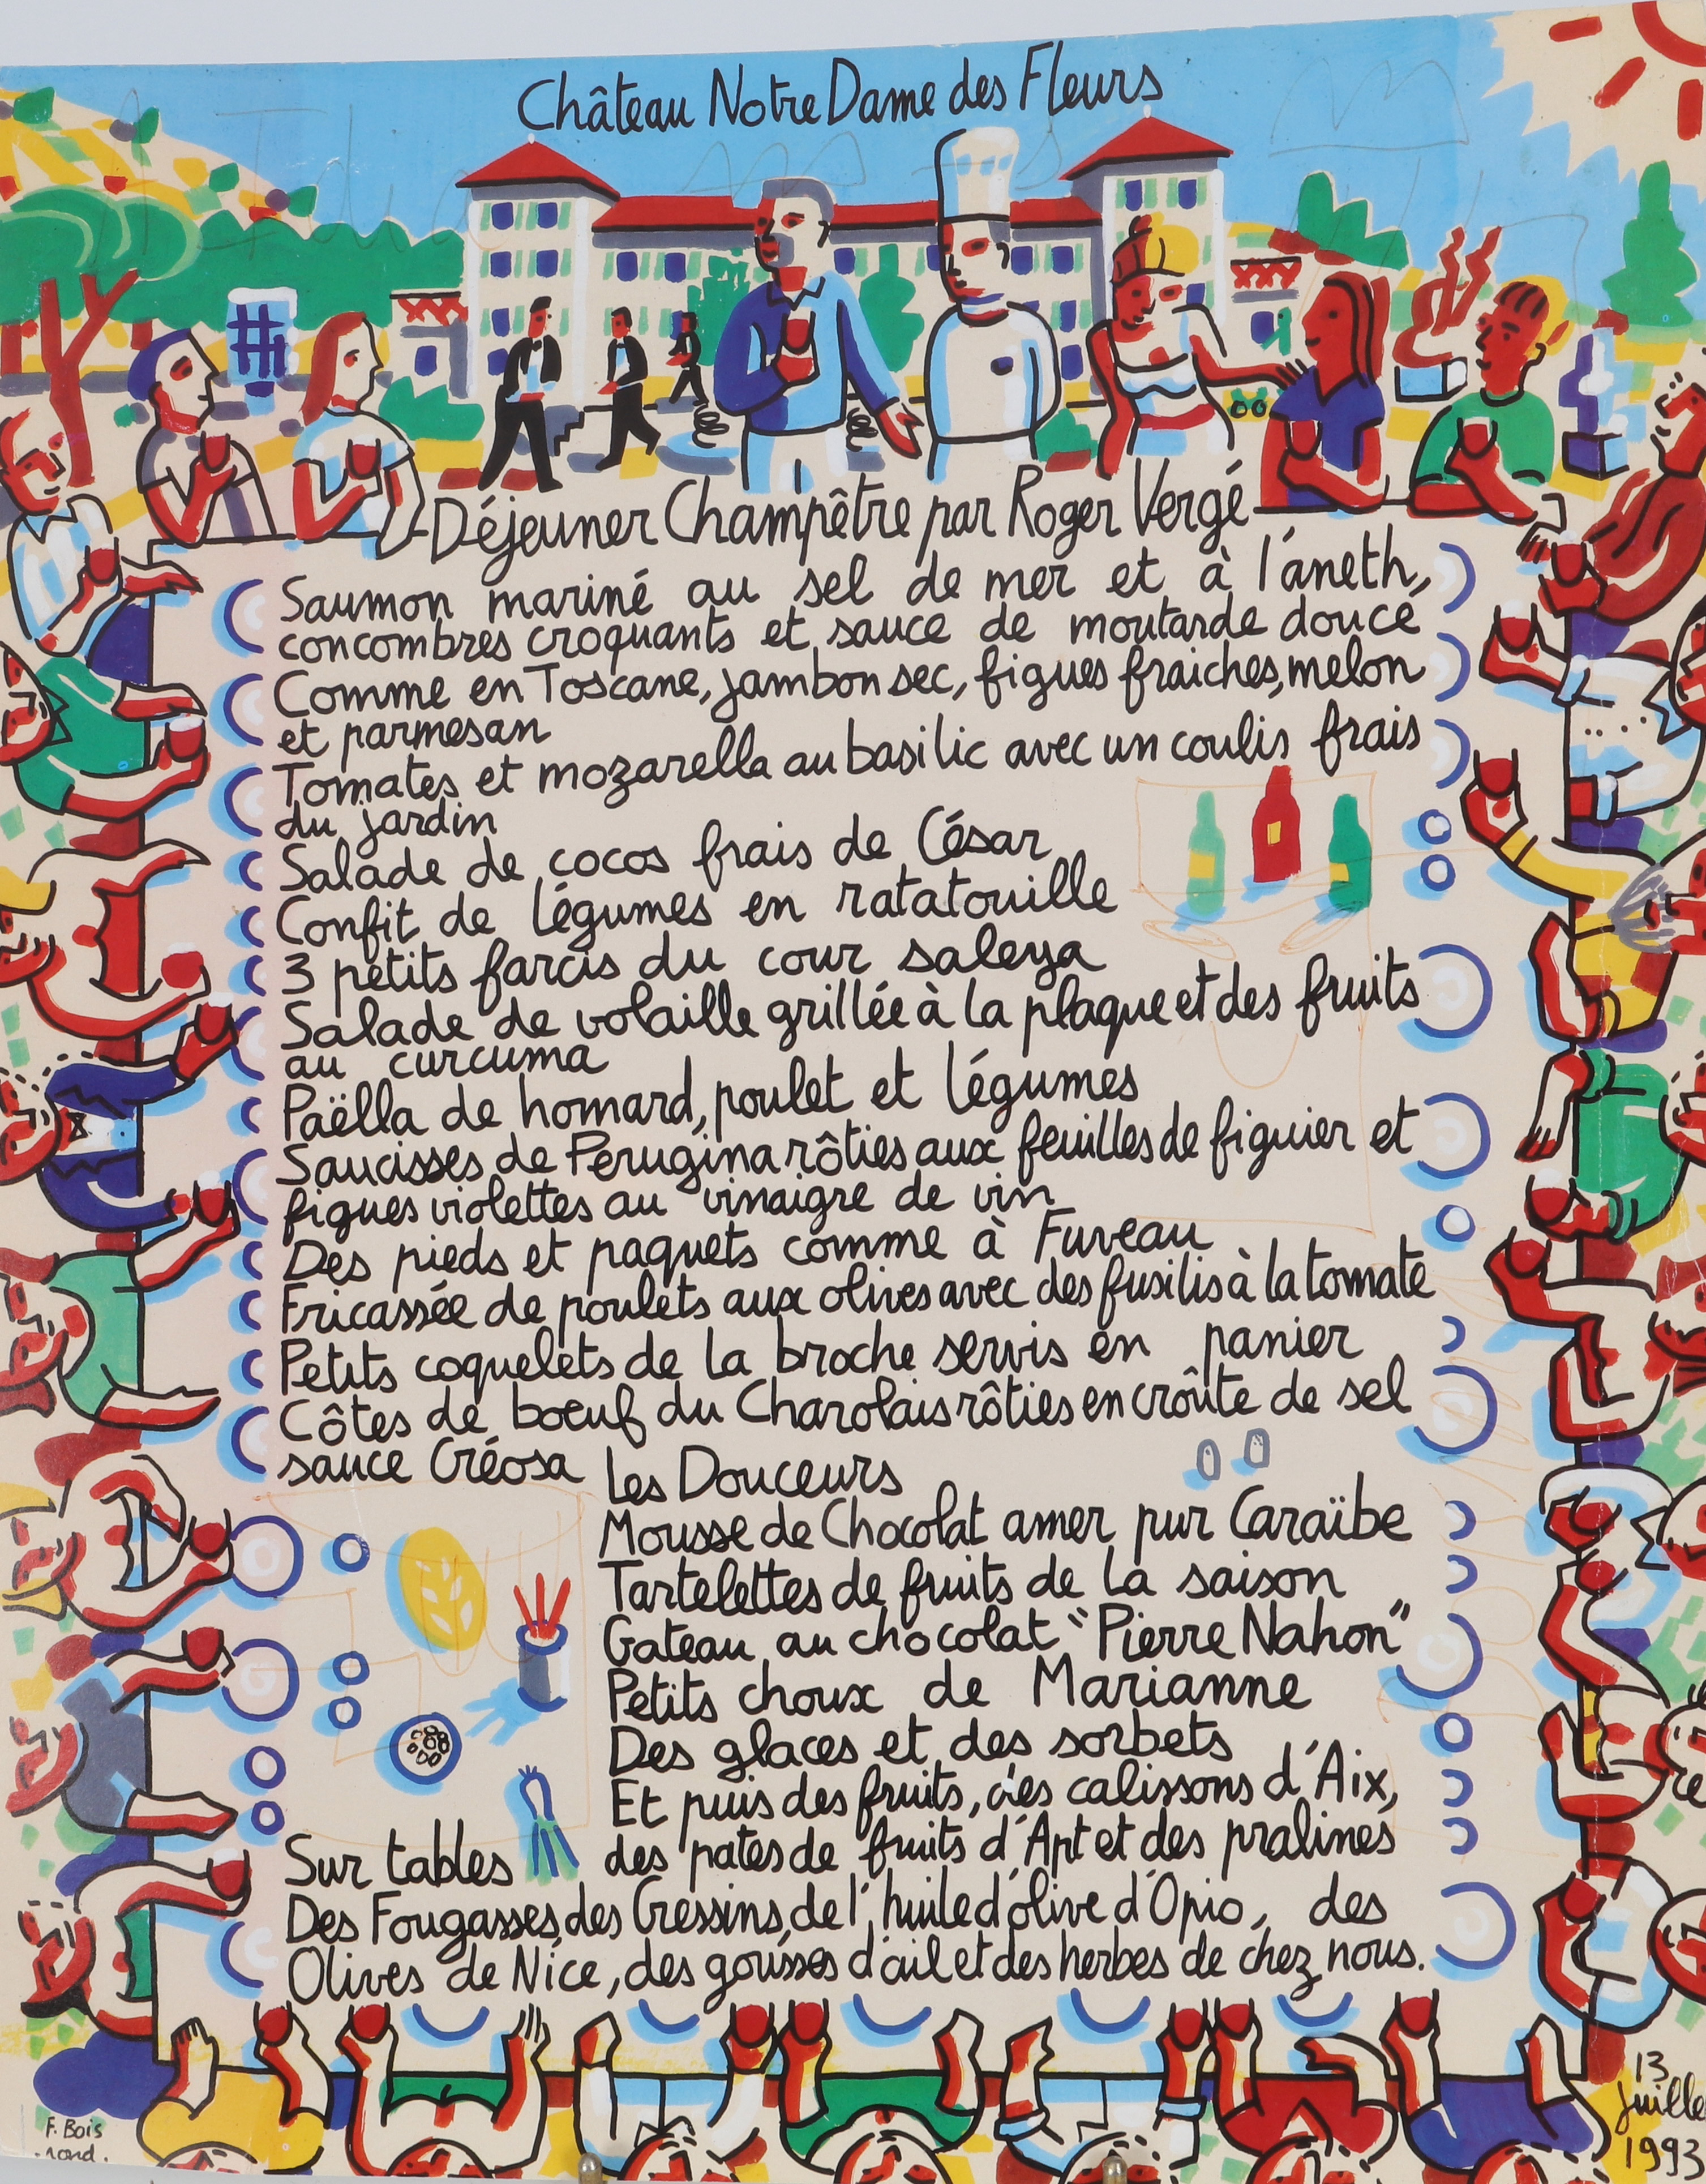 Château Notre Dame des Fleurs
Déjeuner Champêtre par Roger Vergé
Saumon mariné au sel de mer et à l'aneth,
concombres croquants et sauce de moutarde douce
Comme en Toscane, jambon sec, figues fraiches, melon
et parmesan
Tomates et mozarella au basilic avec un coulis frais
du jardin
Salade de cocos frais de César
Confit de légumes en ratatouille
3 petits farcis du cour saleya
Salade de volaille grillée à la plaque et des fruits
au curcuma
Paëlla de homard, poulet et légumes
Saucisses de Perugina rôties aux feuilles de figuier et
figues violettes au vinaigre de vin
Des pieds et paquets comme à Fuveau
Fricassée de poulets aux olives avec des fusilis à la tomate
Petits coquelets de la broche servis en panier
Côtes de boeuf du Charolais rôties en croûte de sel
sauce Créosa
Les Douceurs
Mousse de Chocolat amer pur Caraïbe
Tartelettes de fruits de la saison
Gateau au chocolat "Pierre Nahon"
Petits choux de Marianne
Des glaces et des sorbets
Et puis des fruits, des calissons d'Aix,
des pates de fruits d'Apt et des pralines
Sur tables
Des Fougasses, des Gressins, de l'huile d'olive d'Opio, des
Olives de Nice, des gousses d'ail et des herbes de chez nous.
F. Bois
rond.
13
Juille
1993